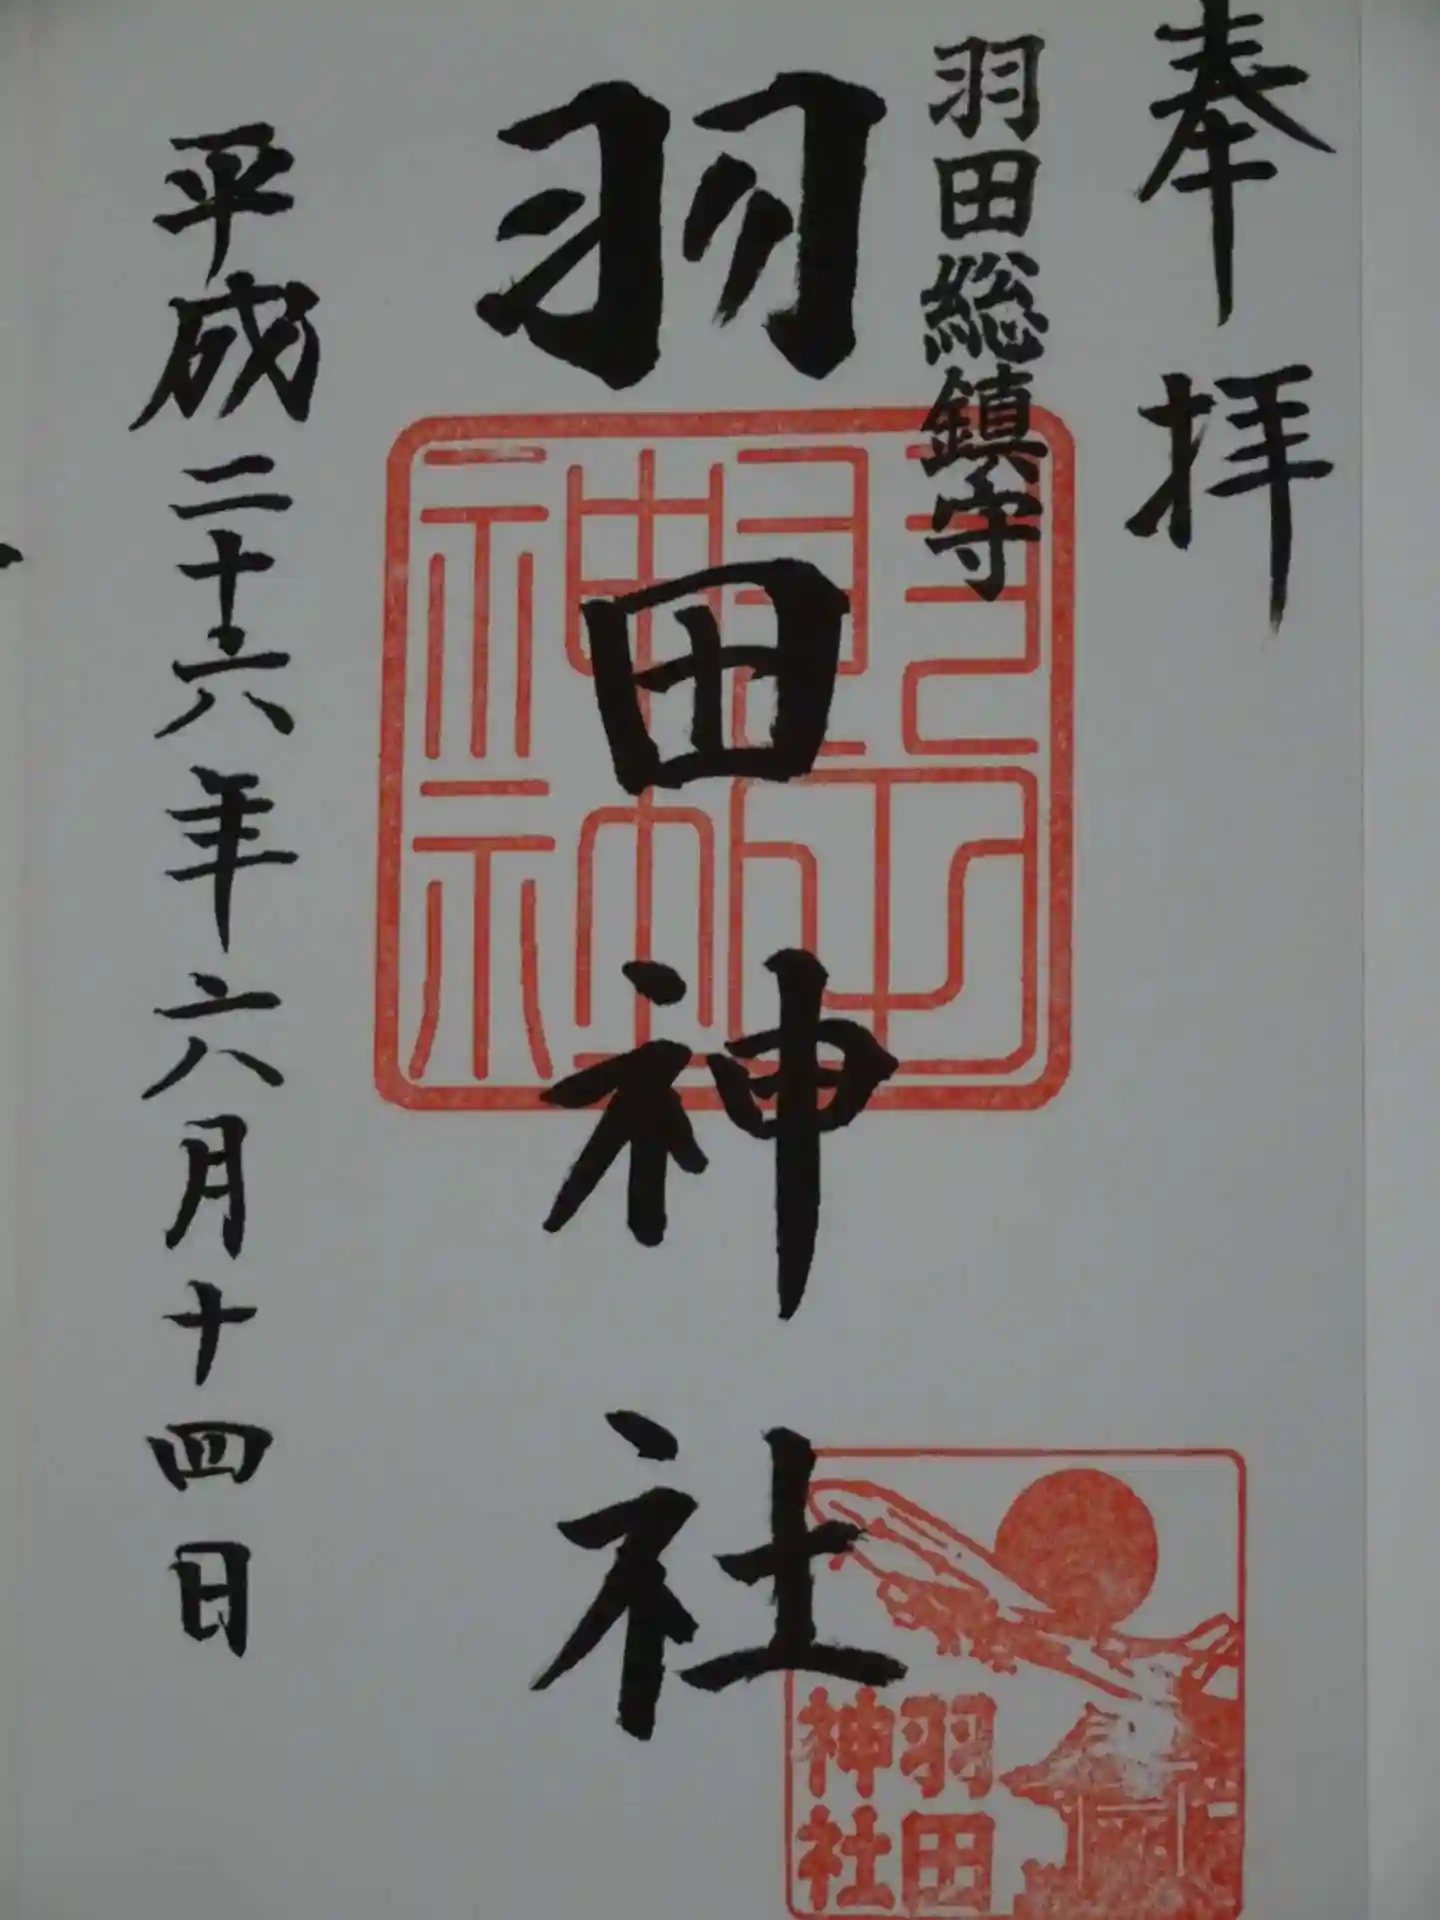 奉拝
羽田総鎮守
羽田神社
平成二十六年六月十四日
羽田
神社